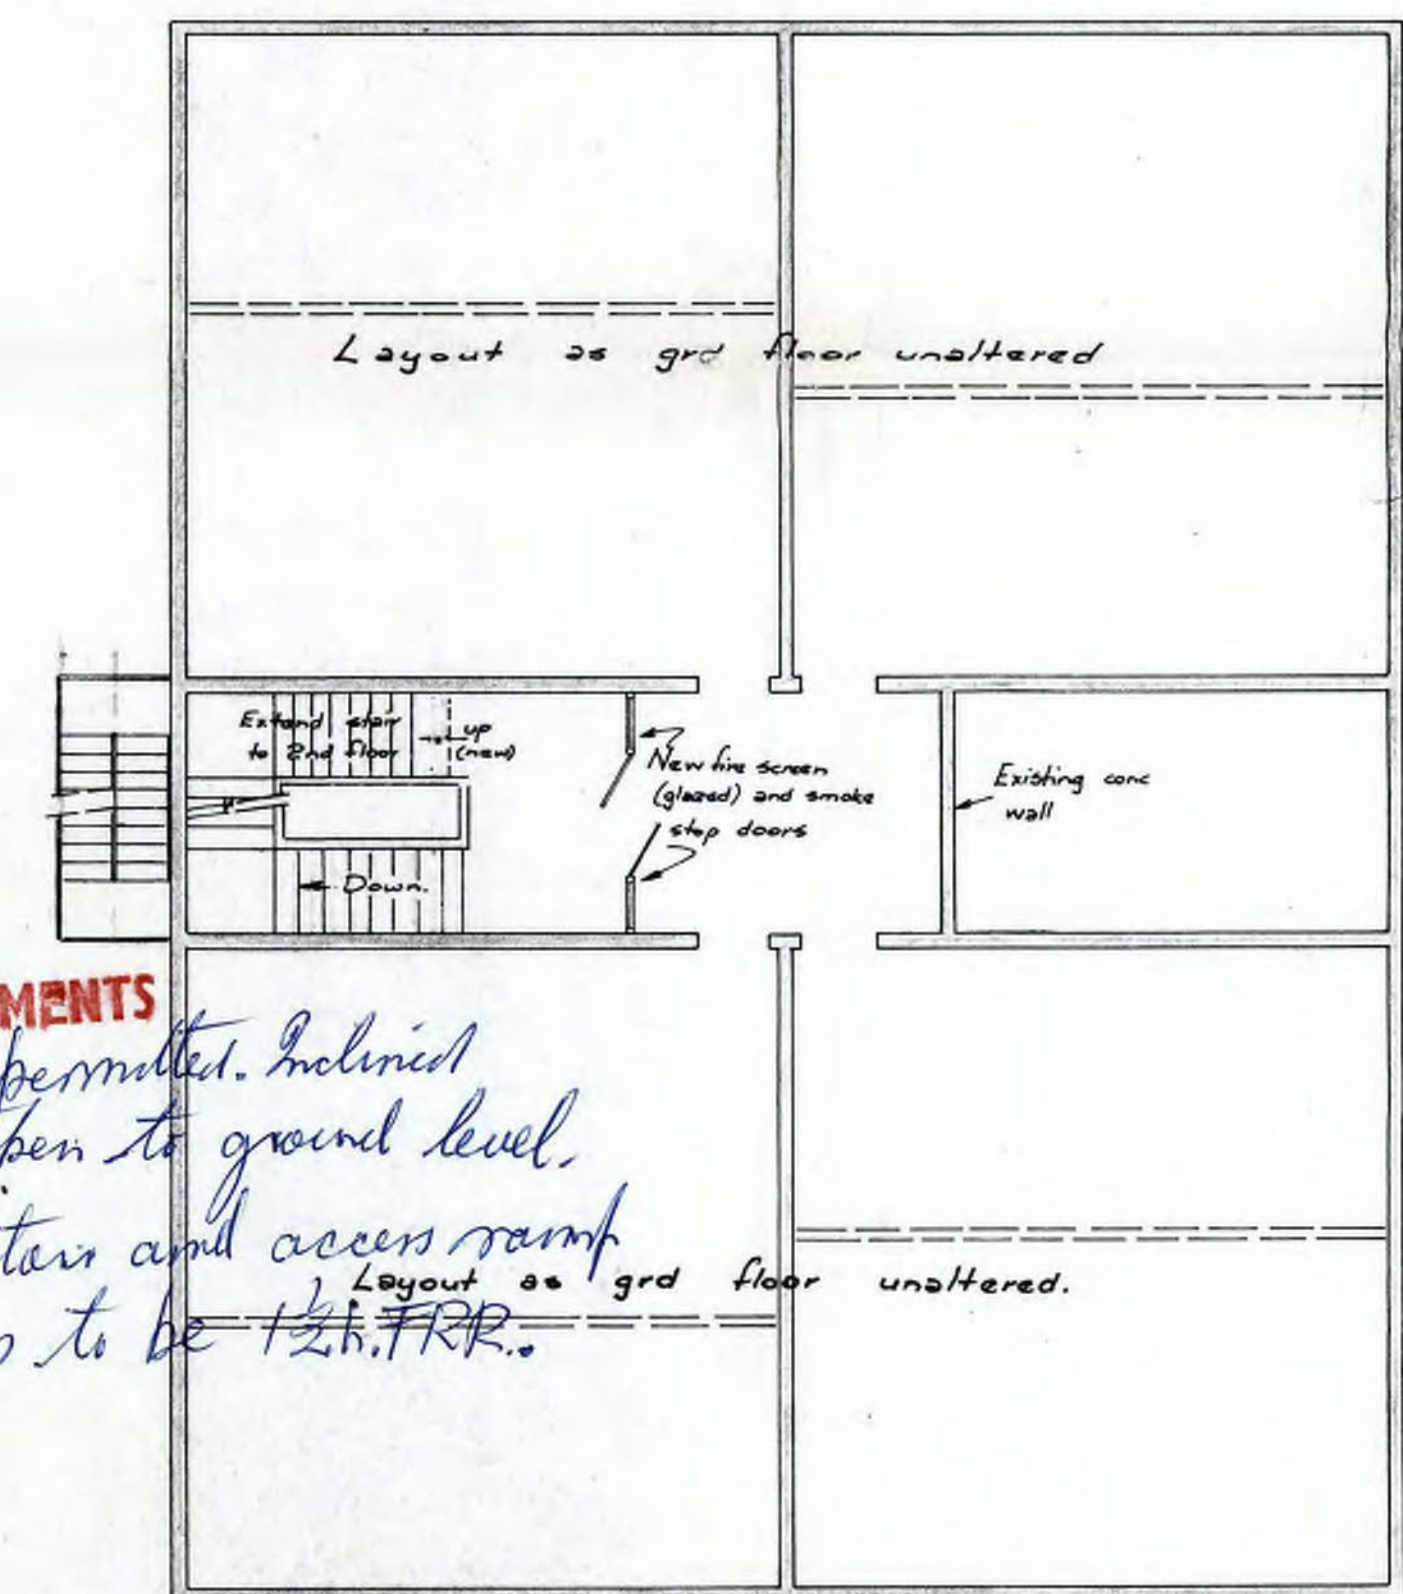 Layout as grd floor unaltered
Extend stair
to 2nd floor
up
(new)
New fire screen
(glazed) and smoke
stop doors
Existing conc
wall
Down.
MENTS
permitted. Inclined
to ground level.
and access ramp
Layout as grd floor unaltered.
to be 1½h.FRR.